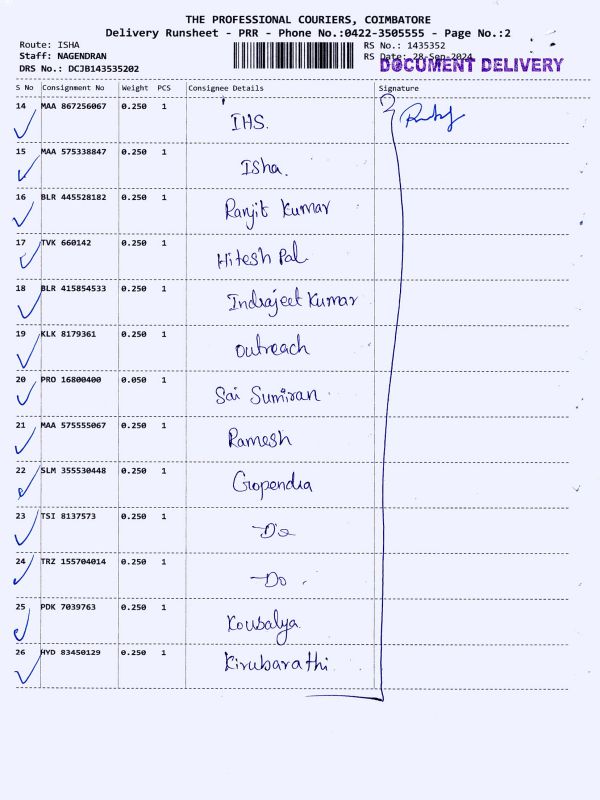 THE PROFESSIONAL COURIERS, COIMBATORE
Delivery Runsheet - PRR - Phone No.:0422-3505555 - Page No.:2
Route: ISHA
Staff: NAGENDRAN
DRS No.: DCJB143535202
RS No.: 1435352
RS Date: 28-Sep-2024
DOCUMENT DELIVERY
S No Consignment No Weight PCS Consignee Details Signature
14 MAA 867256067 0.250 1 IHS.
15 MAA 575338847 0.250 1 Isha.
16 BLR 445528182 0.250 1 Ranjit Kumar
17 TVK 660142 0.250 1 Hitesh Pal
18 BLR 415854533 0.250 1 Indrajeet Kumar
19 KLK 8179361 0.250 1 outreach
20 PRO 16800400 0.050 1 Sai Sumiran
21 MAA 575555067 0.250 1 Ramesh
22 SLM 355530448 0.250 1 Gopendra
23 TSI 8137573 0.250 1 -Do
24 TRZ 155704014 0.250 1 -Do
25 PDK 7039763 0.250 1 Kousalya
26 HYD 83450129 0.250 1 Kirubarathi